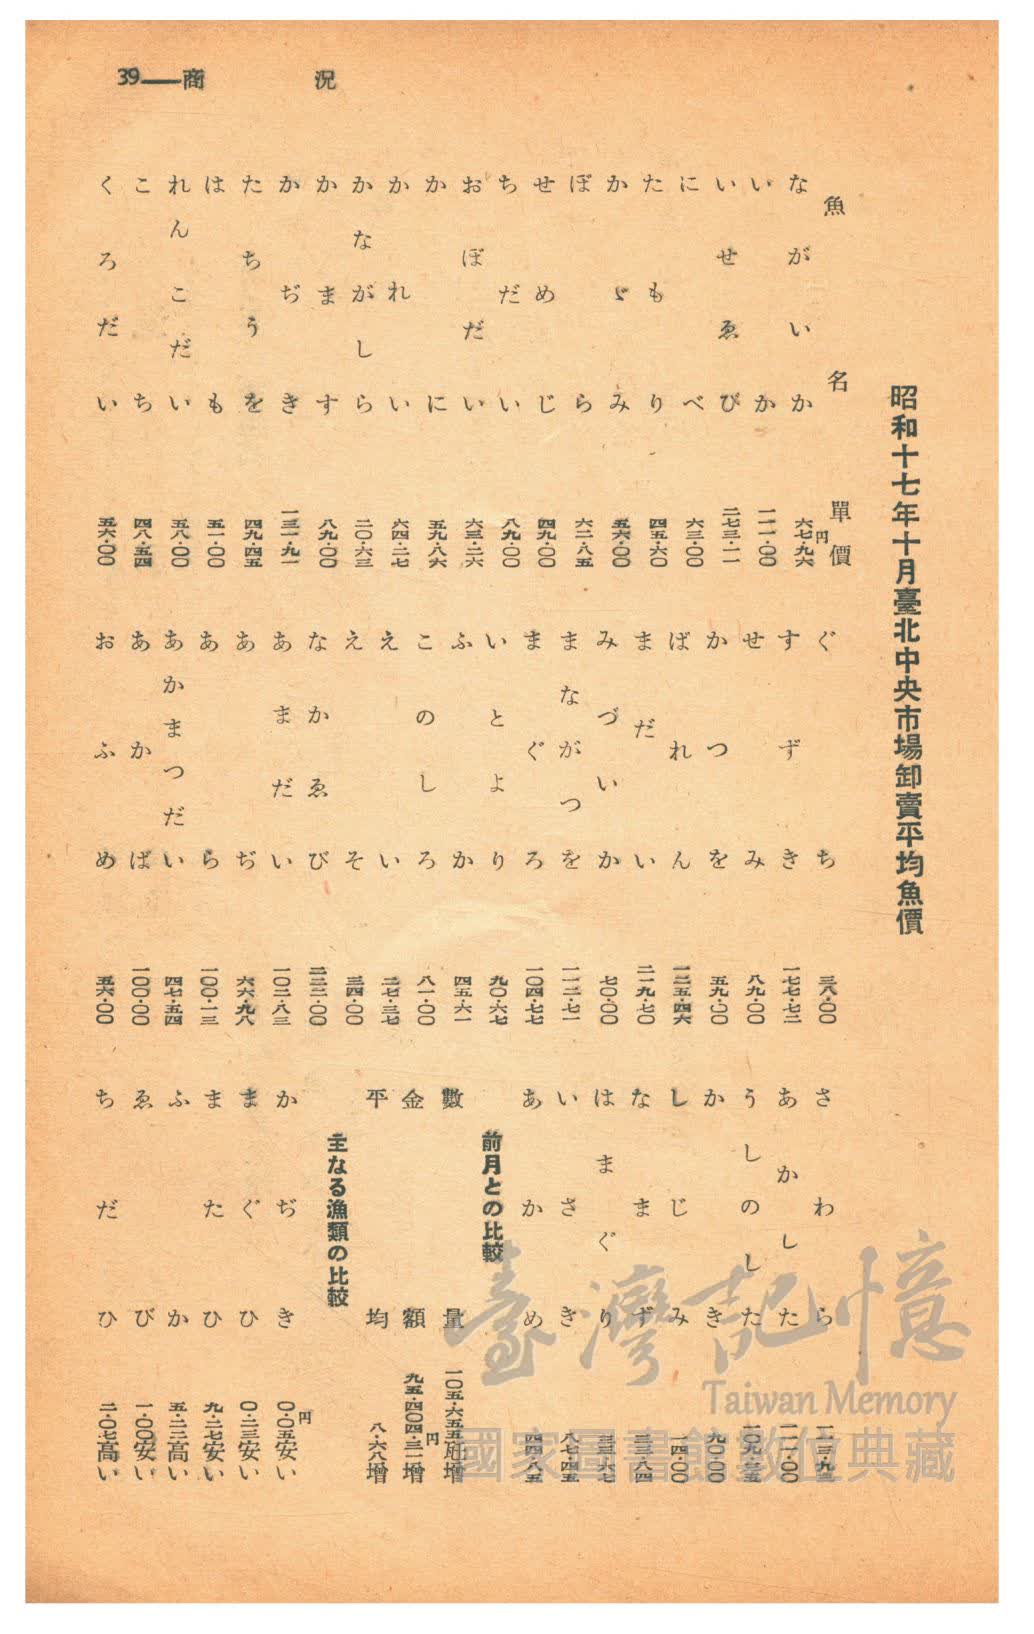 39—商況
昭和十七年十月臺北中央市場卸賣平均魚價
魚名 單價
ながいか 六七・九六円
いか 一一一・〇〇
いせゑび 二七三・一一
にべ 六三・〇〇
たもり 四五・六〇
かゞみ 五六・〇〇
ぼら 六二・八五
せめじ 四九・〇〇
ちだい 八九・〇〇
おぼだい 六三・二六
かに 五九・八六
かれい 六四・二七
かながしら 二〇・六三
かます 八九・〇〇
かぢき 一三一・九一
たちうを 四九・四五
はも 五一・〇〇
れんこだい 五八・〇〇
こち 四八・五四
くろだい 五六・〇〇
ぐち 三八・〇〇
すずき 一七七・七二
せみ 八九・〇〇
かつを 五九・〇〇
ばれん 一二五・四六
まだい 二一九・七〇
みづいか 七〇・〇〇
まながつを 一一二・七一
まぐろ 一〇四・七七
いとより 九〇・六七
ふか 四五・六一
このしろ 八一・〇〇
えい 二七・三七
えそ 三四・〇〇
なかゑび 二二二・〇〇
あまだい 一〇二・八三
あぢ 六六・九八
あら 一〇〇・一三
あかまつだい 四七・五四
あかば 一〇〇・〇〇
おふめ 五六・〇〇
さわら 一二三・九三
あかした 一二一・〇〇
うしのした 一〇九・三五
かき 九〇・〇〇
しじみ 一四・〇〇
なまず 三三・八四
はまぐり 三三・六七
いさき 八七・四五
あかめ 四四・八五
前月との比較
數量 一〇五・六五五瓩増
金額 九五・四〇四・三一円増
平均 八・六八増
主なる漁類の比較
かぢき 〇・〇五円安い
まぐひ 〇・二三安い
またひ 九・二七安い
ふか 五・二二高い
ゑび 一・〇〇安い
ちだひ 二・〇七高い
臺灣記憶
Taiwan Memory
國家圖書館數位典藏